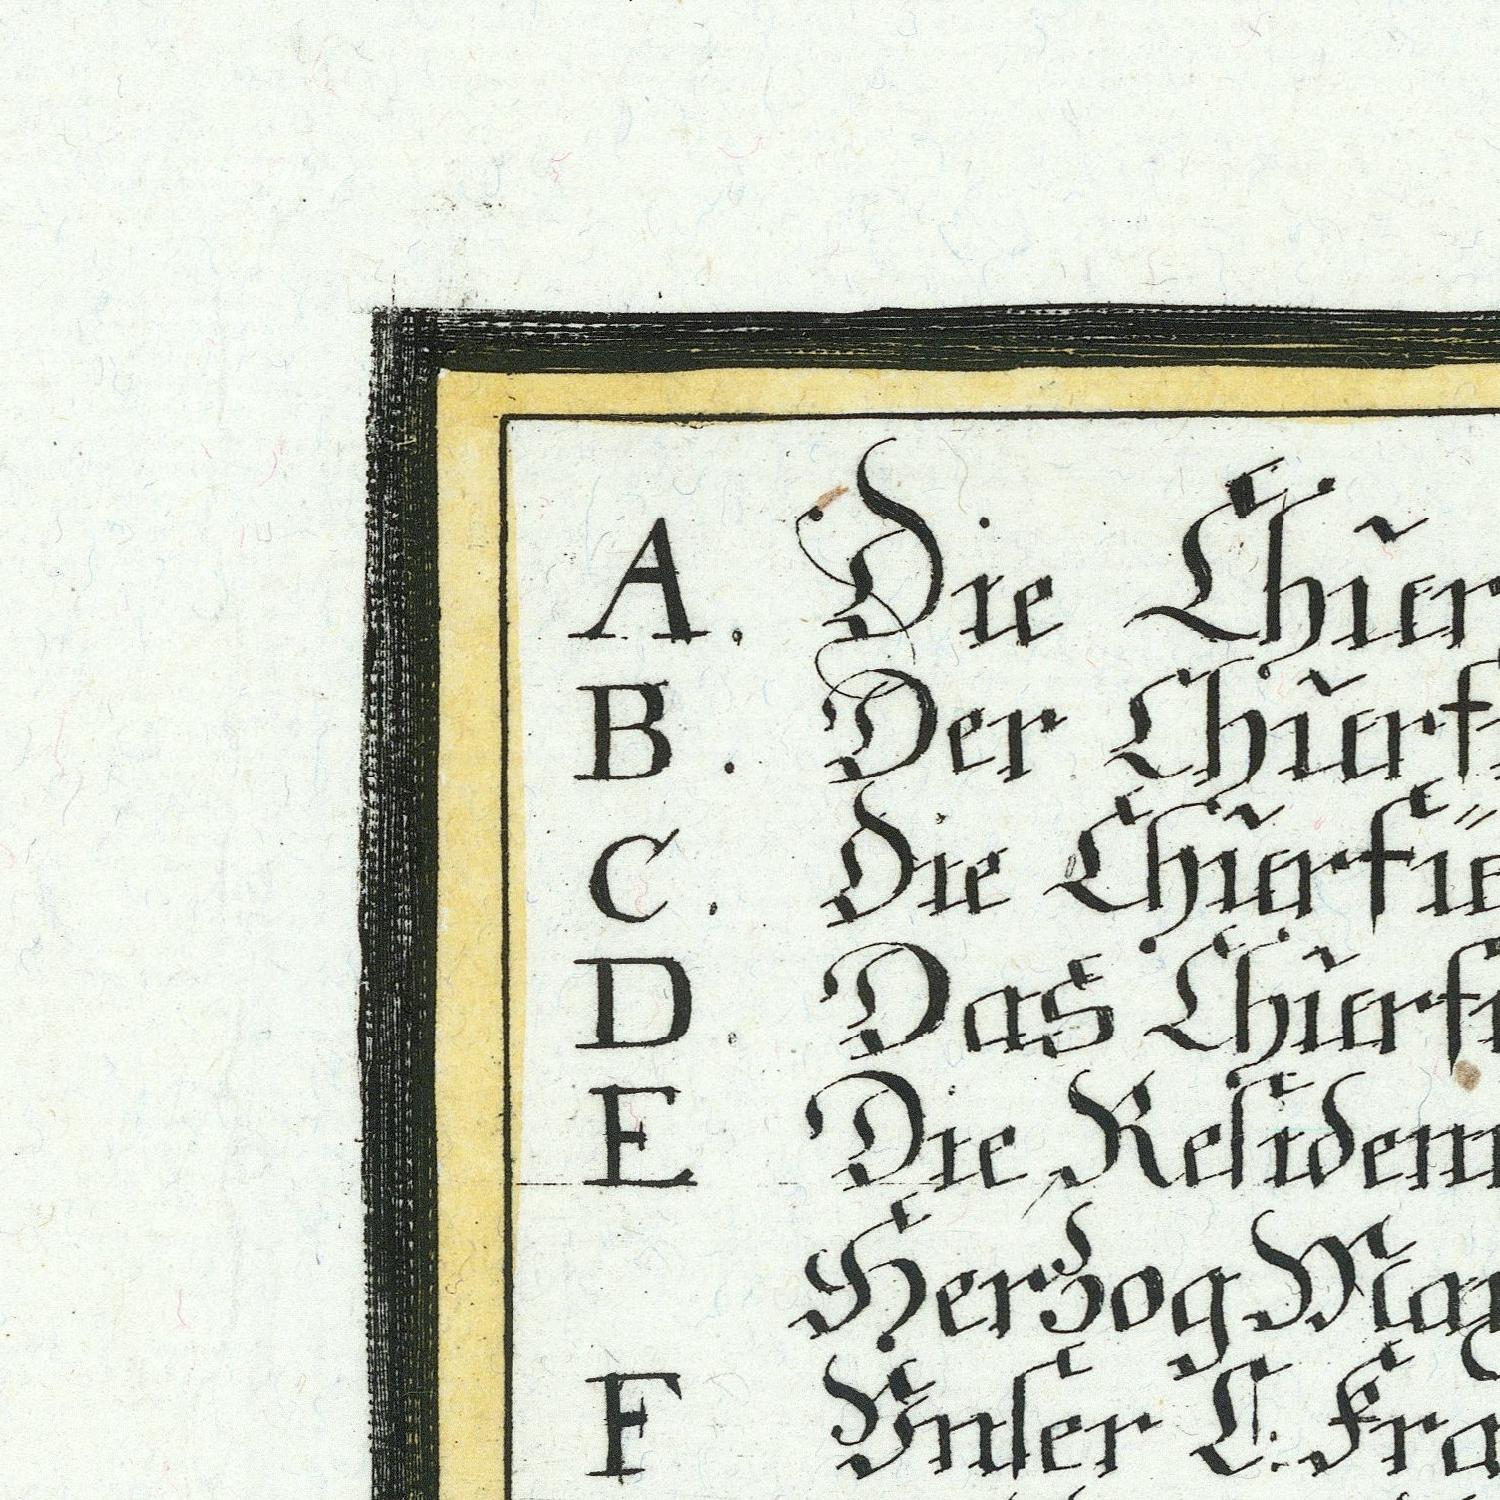 A. Die Chur
B. Der Churf
C. Die Churfü
D. Das Churf
E Die Residen
Herzog Max
F Vnser L. Fra